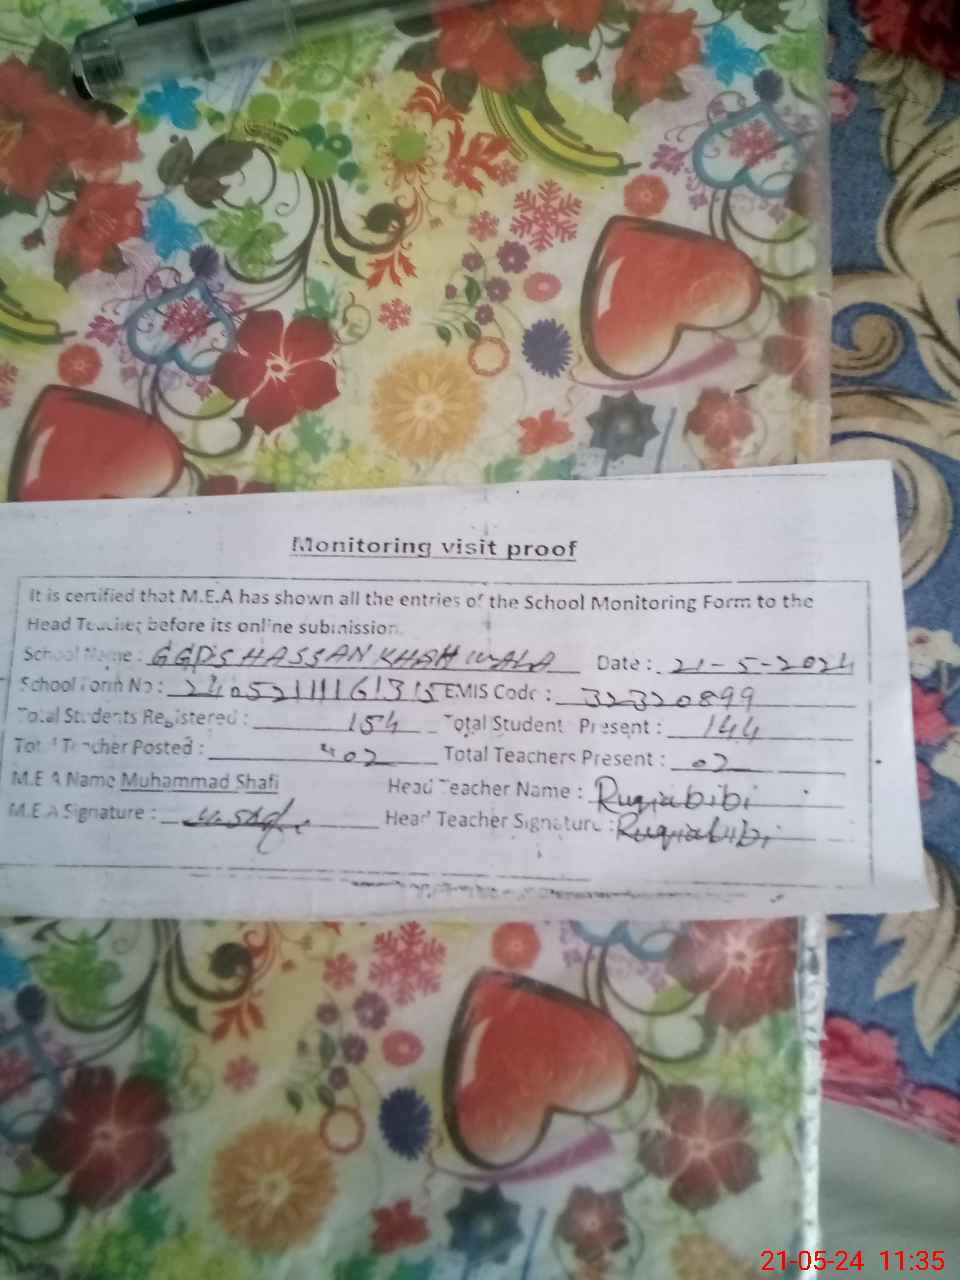 Monitoring visit proof
It is certified that M.E.A has shown all the entries of the School Monitoring Form to the
Head Teacher before its online submission.
School Name : GGPS HASSAN KHAH WALA Date : 21-5-2024
School Form No : 24052111161315 EMIS Code : 32320899
Total Students Registered : 154 Total Student Present : 144
Total Teacher Posted : 02 Total Teachers Present : 02
M.E.A Name Muhammad Shafi Head Teacher Name : Ruqia bibi
M.E.A Signature : Head Teacher Signature : Ruqia bibi
21-05-24 11:35